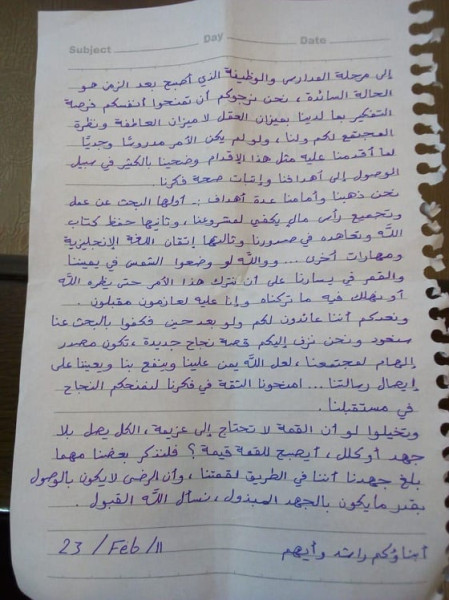 Subject Day Date
إلى مرحلة المدارس والوظيفة الذي أصبح بعد الزمن هو
الحالة السائدة، نحن نرجوكم أن تمنحوا أنفسكم فرصة
التفكير بما لدينا بميزان العقل لا ميزان العاطفة ونظرة
المجتمع لكم ولنا، ولو لم يكن الأمر مدروسًا وجديًا
لما أقدمنا عليه مثل هذا الإقدام وضحينا بالكثير في سبيل
الوصول إلى أهدافنا وإثبات صحة فكرنا.
نحن ذهبنا وأمامنا عدة أهداف: أولها البحث عن عمل
وتجميع رأس مالٍ يكفي لمشروعنا، وثانيها حفظ كتاب
اللّٰه وتعاهده في صدورنا وثالثها إتقان اللغة الإنجليزية
ومهارات أخرى .... وواللّٰه لو وضعوا الشمس في يميننا
والقمر في يسارنا على أن نترك هذا الأمر حتى يظهره اللّٰه
أو نهلك فيه ما تركناه وإنا عليه لعازمون مقبلون.
ونعدكم أننا عائدون لكم ولو بعد حين فكفوا بالبحث عنا
سنعود ونحن نزف إليكم قصة نجاح جديدة، تكون مصدر
إلهام لمجتمعنا، لعل اللّٰه يمن علينا وينفع بنا ويعيننا على
إيصال رسالتنا .... امنحونا الثقة في فكرنا لنمنحكم النجاح
في مستقبلنا.
وتخيلوا لو أن القمة لا تحتاج إلى عزيمة، الكل يصل بلا
جهد أو كلل، أيصبح للقمة قيمة؟ فلنذكر بعضنا مهما
بلغ جهدنا أننا في الطريق لقمتنا، وأن الرضى لا يكون بالوصول
بقدر ما يكون بالجهد المبذول، نسأل اللّٰه القبول.
أبناؤكم راشد وأيهم
23 / Feb / 11